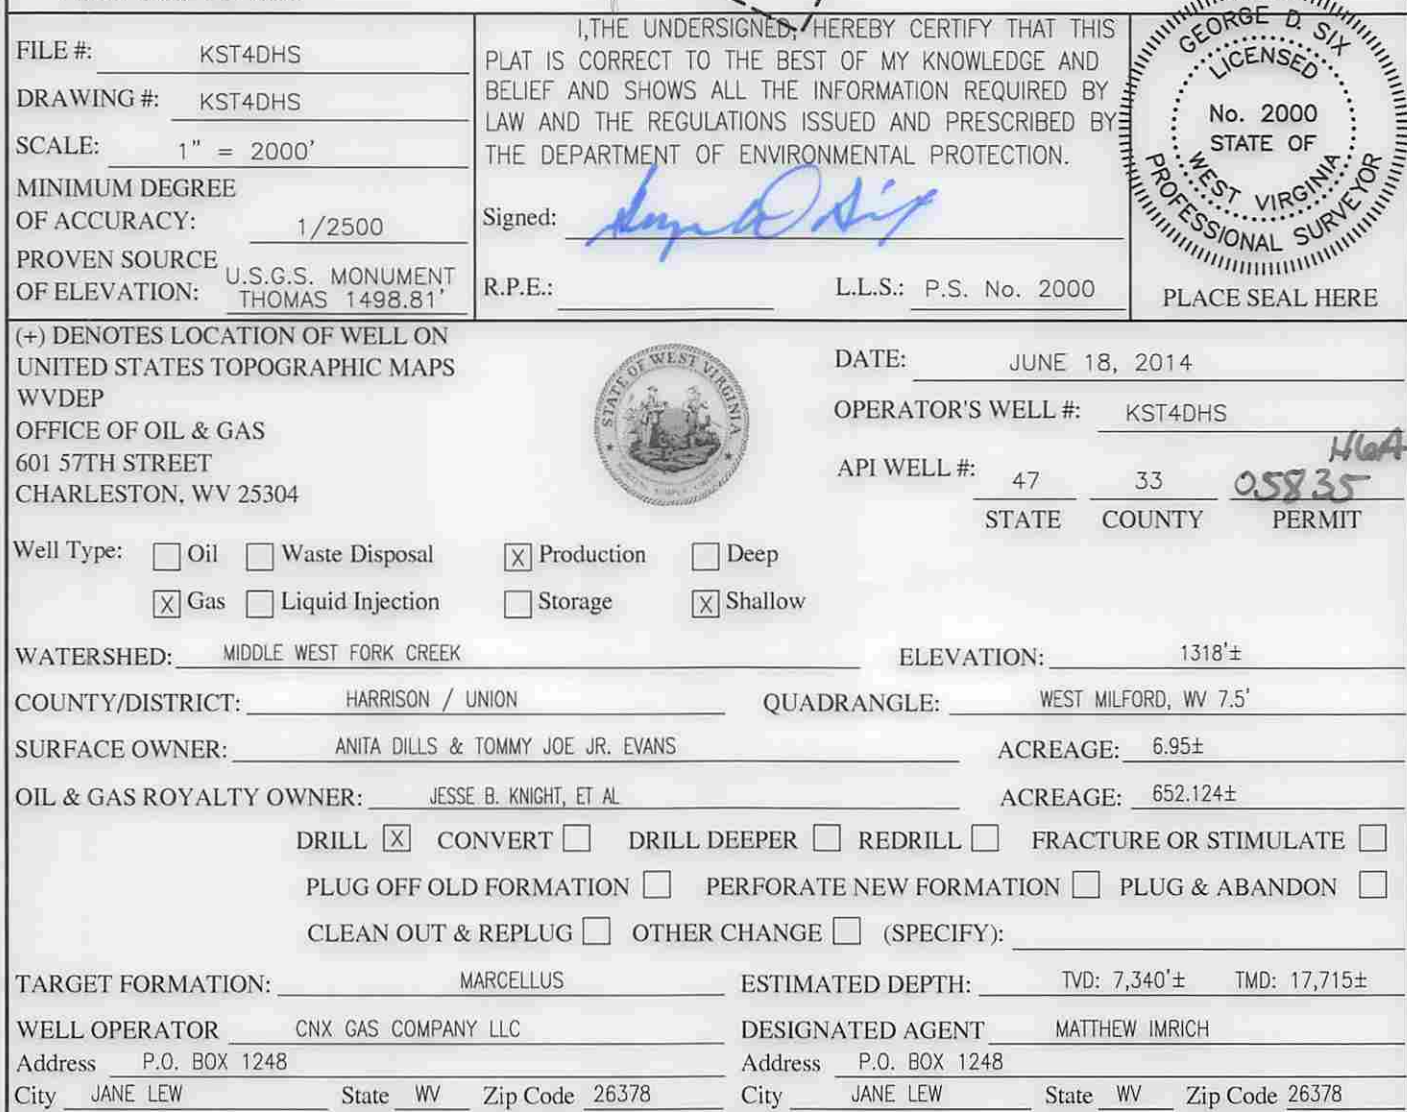 FILE #: KST4DHS
DRAWING #: KST4DHS
SCALE: 1" = 2000'
MINIMUM DEGREE
OF ACCURACY: 1/2500
PROVEN SOURCE U.S.G.S. MONUMENT
OF ELEVATION: THOMAS 1498.81'
I,THE UNDERSIGNED, HEREBY CERTIFY THAT THIS
PLAT IS CORRECT TO THE BEST OF MY KNOWLEDGE AND
BELIEF AND SHOWS ALL THE INFORMATION REQUIRED BY
LAW AND THE REGULATIONS ISSUED AND PRESCRIBED BY
THE DEPARTMENT OF ENVIRONMENTAL PROTECTION.
Signed:
R.P.E.: L.L.S.: P.S. No. 2000
GEORGE D. SIX
LICENSED
No. 2000
STATE OF
WEST VIRGINIA
PROFESSIONAL SURVEYOR
PLACE SEAL HERE
(+) DENOTES LOCATION OF WELL ON
UNITED STATES TOPOGRAPHIC MAPS
WVDEP
OFFICE OF OIL & GAS
601 57TH STREET
CHARLESTON, WV 25304
STATE OF WEST VIRGINIA
DATE: JUNE 18, 2014
OPERATOR'S WELL #: KST4DHS
H6A
API WELL #: 47 33 05835
STATE COUNTY PERMIT
Well Type: Oil Waste Disposal X Production Deep
X Gas Liquid Injection Storage X Shallow
WATERSHED: MIDDLE WEST FORK CREEK ELEVATION: 1318'±
COUNTY/DISTRICT: HARRISON / UNION QUADRANGLE: WEST MILFORD, WV 7.5'
SURFACE OWNER: ANITA DILLS & TOMMY JOE JR. EVANS ACREAGE: 6.95±
OIL & GAS ROYALTY OWNER: JESSE B. KNIGHT, ET AL ACREAGE: 652.124±
DRILL X CONVERT DRILL DEEPER REDRILL FRACTURE OR STIMULATE
PLUG OFF OLD FORMATION PERFORATE NEW FORMATION PLUG & ABANDON
CLEAN OUT & REPLUG OTHER CHANGE (SPECIFY):
TARGET FORMATION: MARCELLUS ESTIMATED DEPTH: TVD: 7,340'± TMD: 17,715±
WELL OPERATOR CNX GAS COMPANY LLC DESIGNATED AGENT MATTHEW IMRICH
Address P.O. BOX 1248 Address P.O. BOX 1248
City JANE LEW State WV Zip Code 26378 City JANE LEW State WV Zip Code 26378